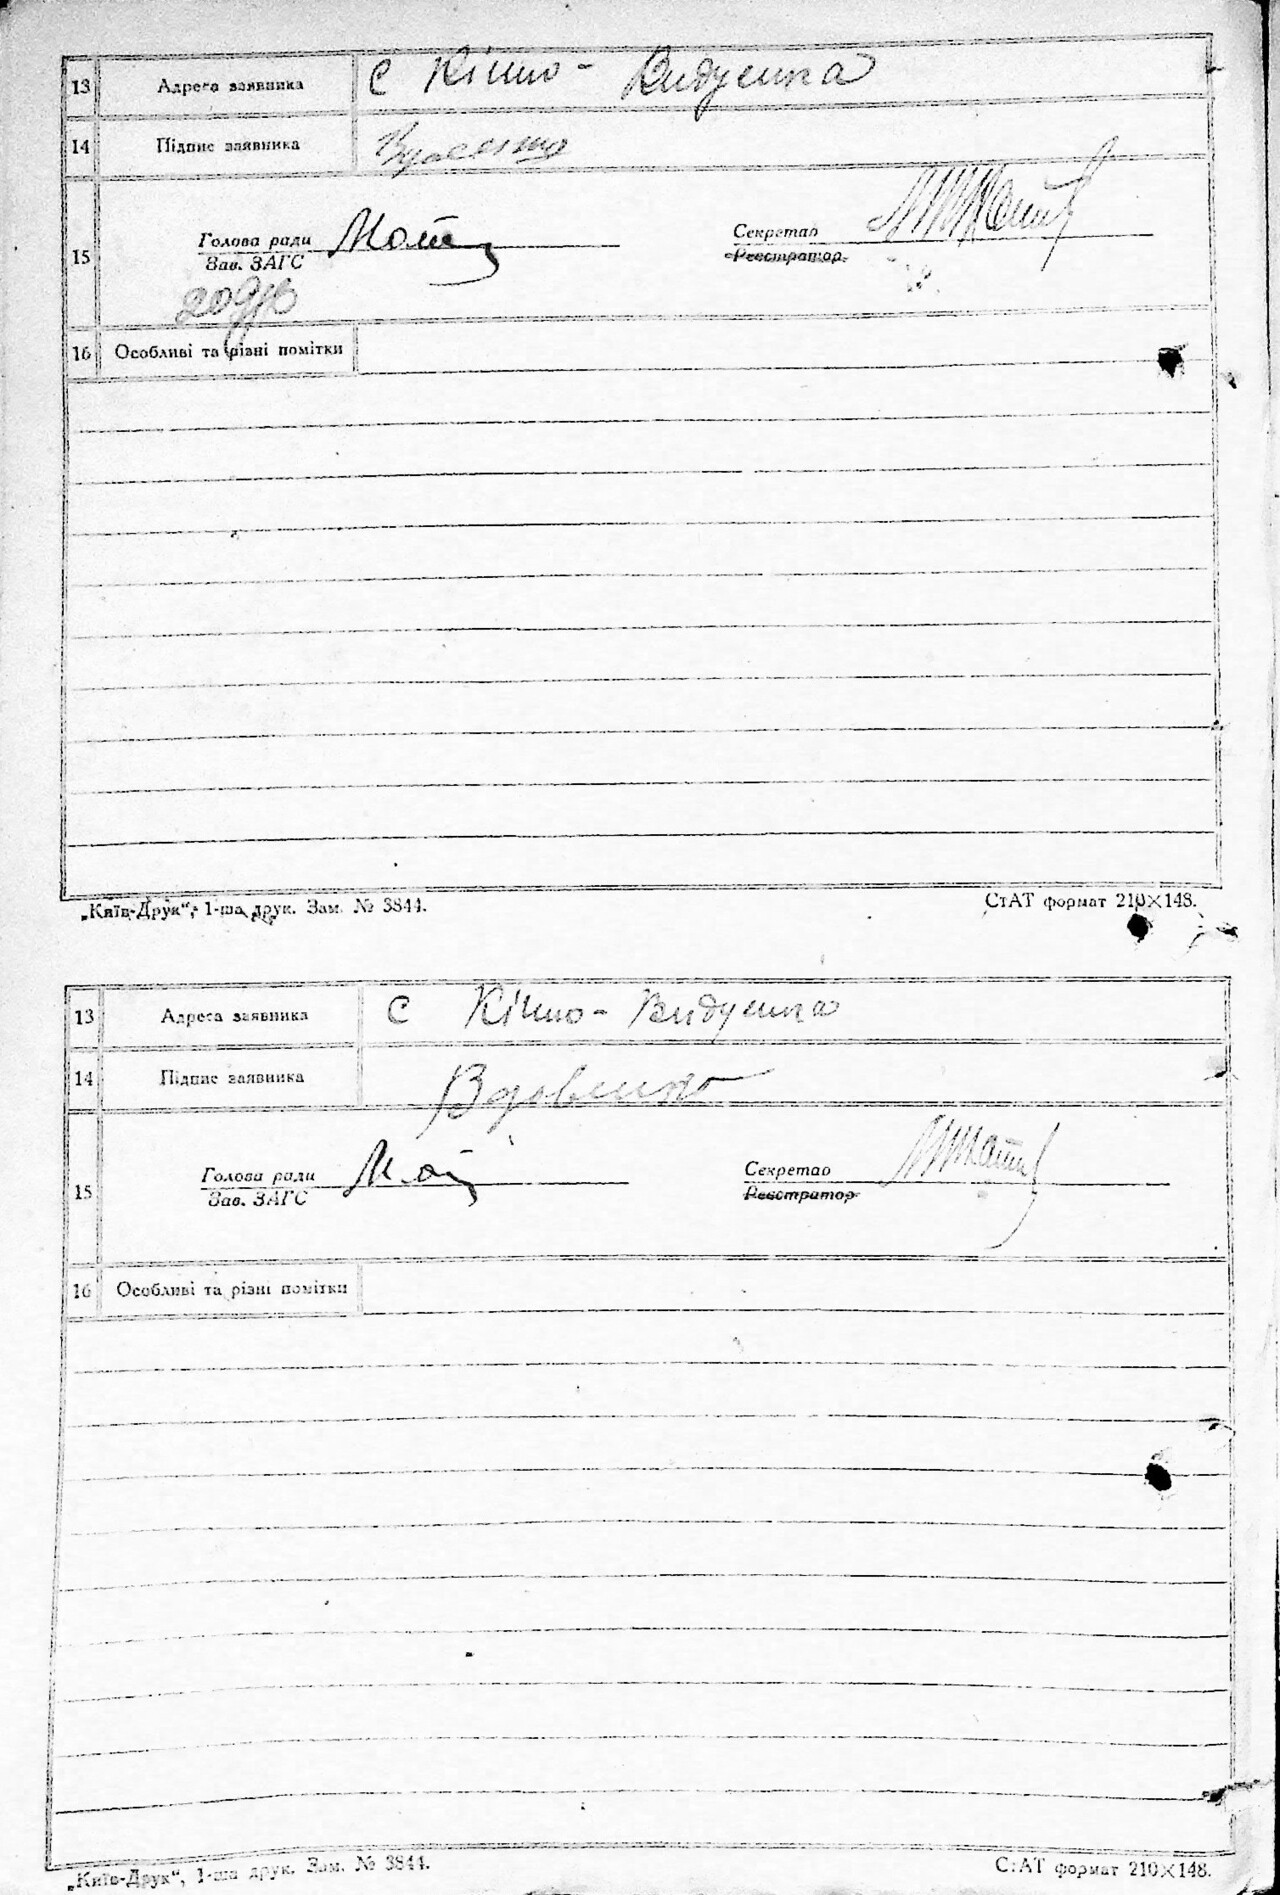 13 Адреса заявника С Кішо-Видумка
14 Підпис заявника
Голова ради Секретар
15 Зав. ЗАГС Реєстратор.
16 Особливі та різні помітки
„Київ-Друк“, 1-ша друк. Зам. № 3844. СтАТ формат 210×148.
13 Адреса заявника С Кішо-Видумка
14 Підпис заявника Вдовенко
Голова ради Секретар
15 Зав. ЗАГС Реєстратор
16 Особливі та різні помітки
„Київ-Друк“, 1-ша друк. Зам. № 3844. СтАТ формат 210×148.